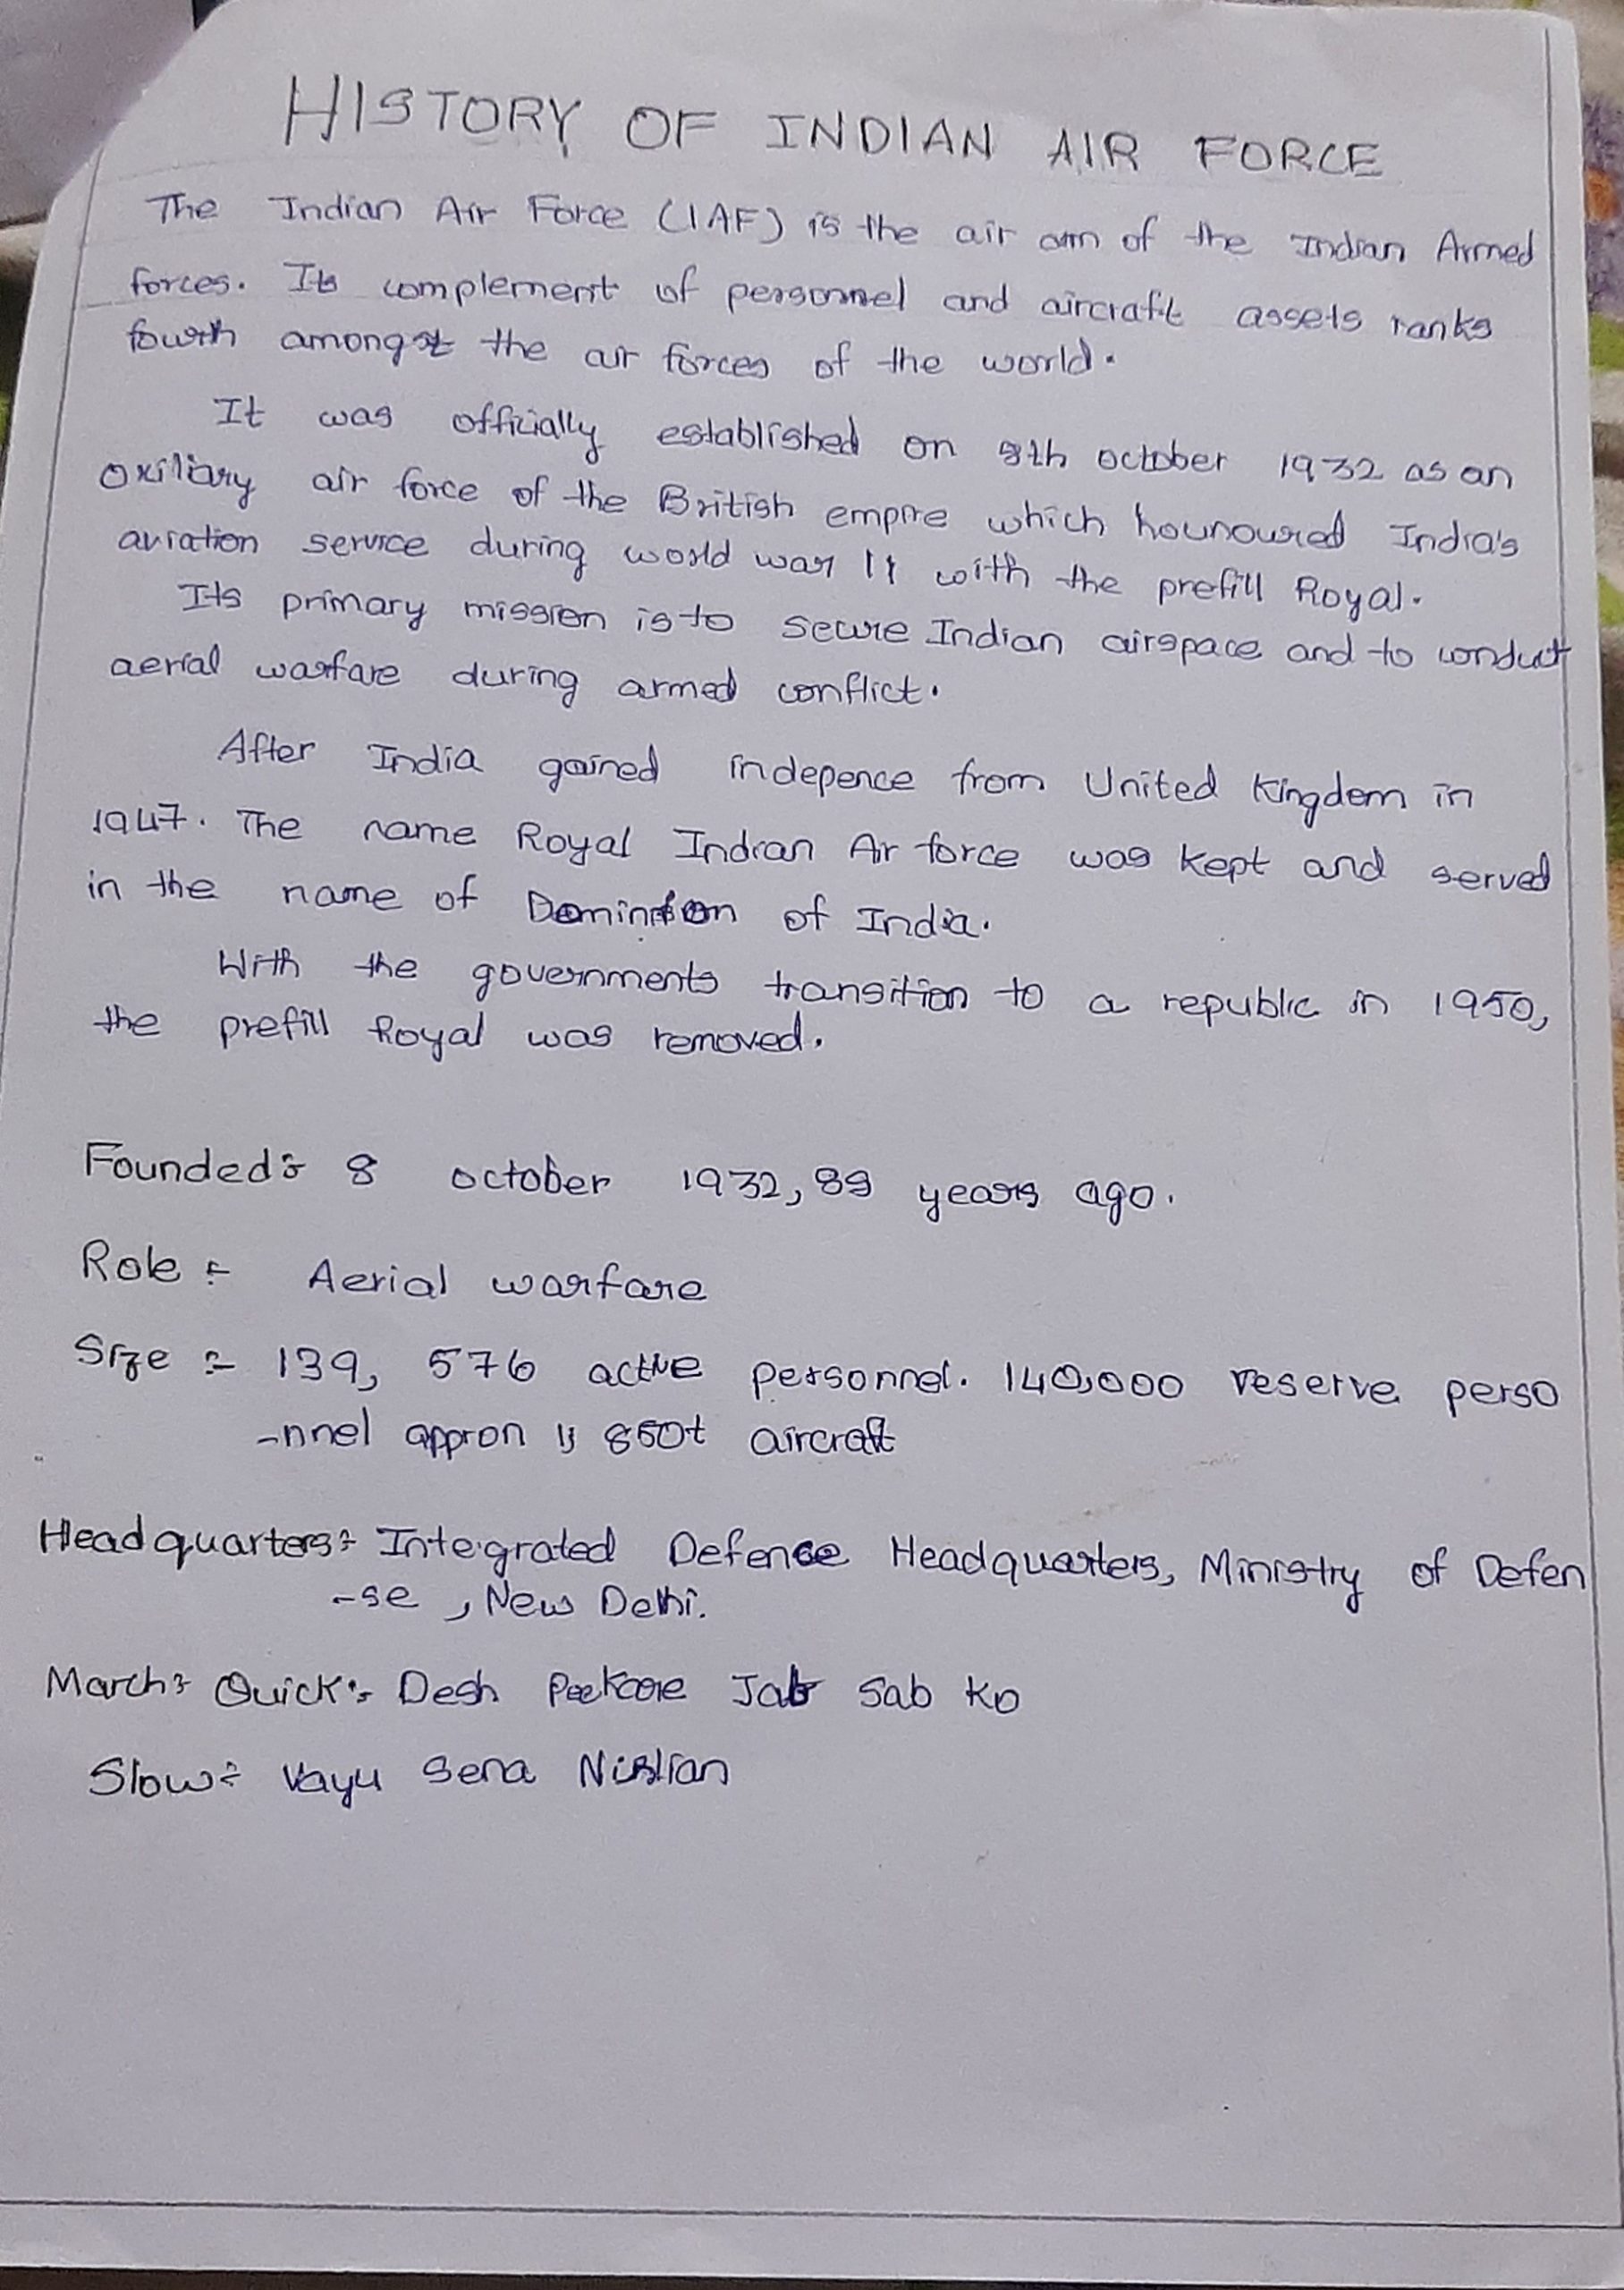 HISTORY OF INDIAN AIR FORCE
The Indian Air Force (IAF) is the air arm of the Indian Armed
forces. Its complement of personnel and aircraft assets ranks
fourth amongst the air forces of the world.
It was officially established on 8th october 1932 as an
oxiliary air force of the British empire which hounoured India's
aviation service during world war II with the prefill Royal.
Its primary mission is to secure Indian airspace and to conduct
aerial warfare during armed conflict.
After India gained indepence from United Kingdom in
1947. The name Royal Indian Air force was kept and served
in the name of Dominion of India.
With the governments transition to a republic in 1950,
the prefill Royal was removed.
Founded:- 8 october 1932, 89 years ago.
Role :- Aerial warfare
Size :- 139, 576 active personnel. 140,000 reserve perso
-nnel appron 850+ aircraft
Headquarters:- Integrated Defence Headquarters, Ministry of Defen
-se, New Delhi.
March:- Quick:- Desh Jab Sab Ko
Slow:- Vayu Sena Nishan